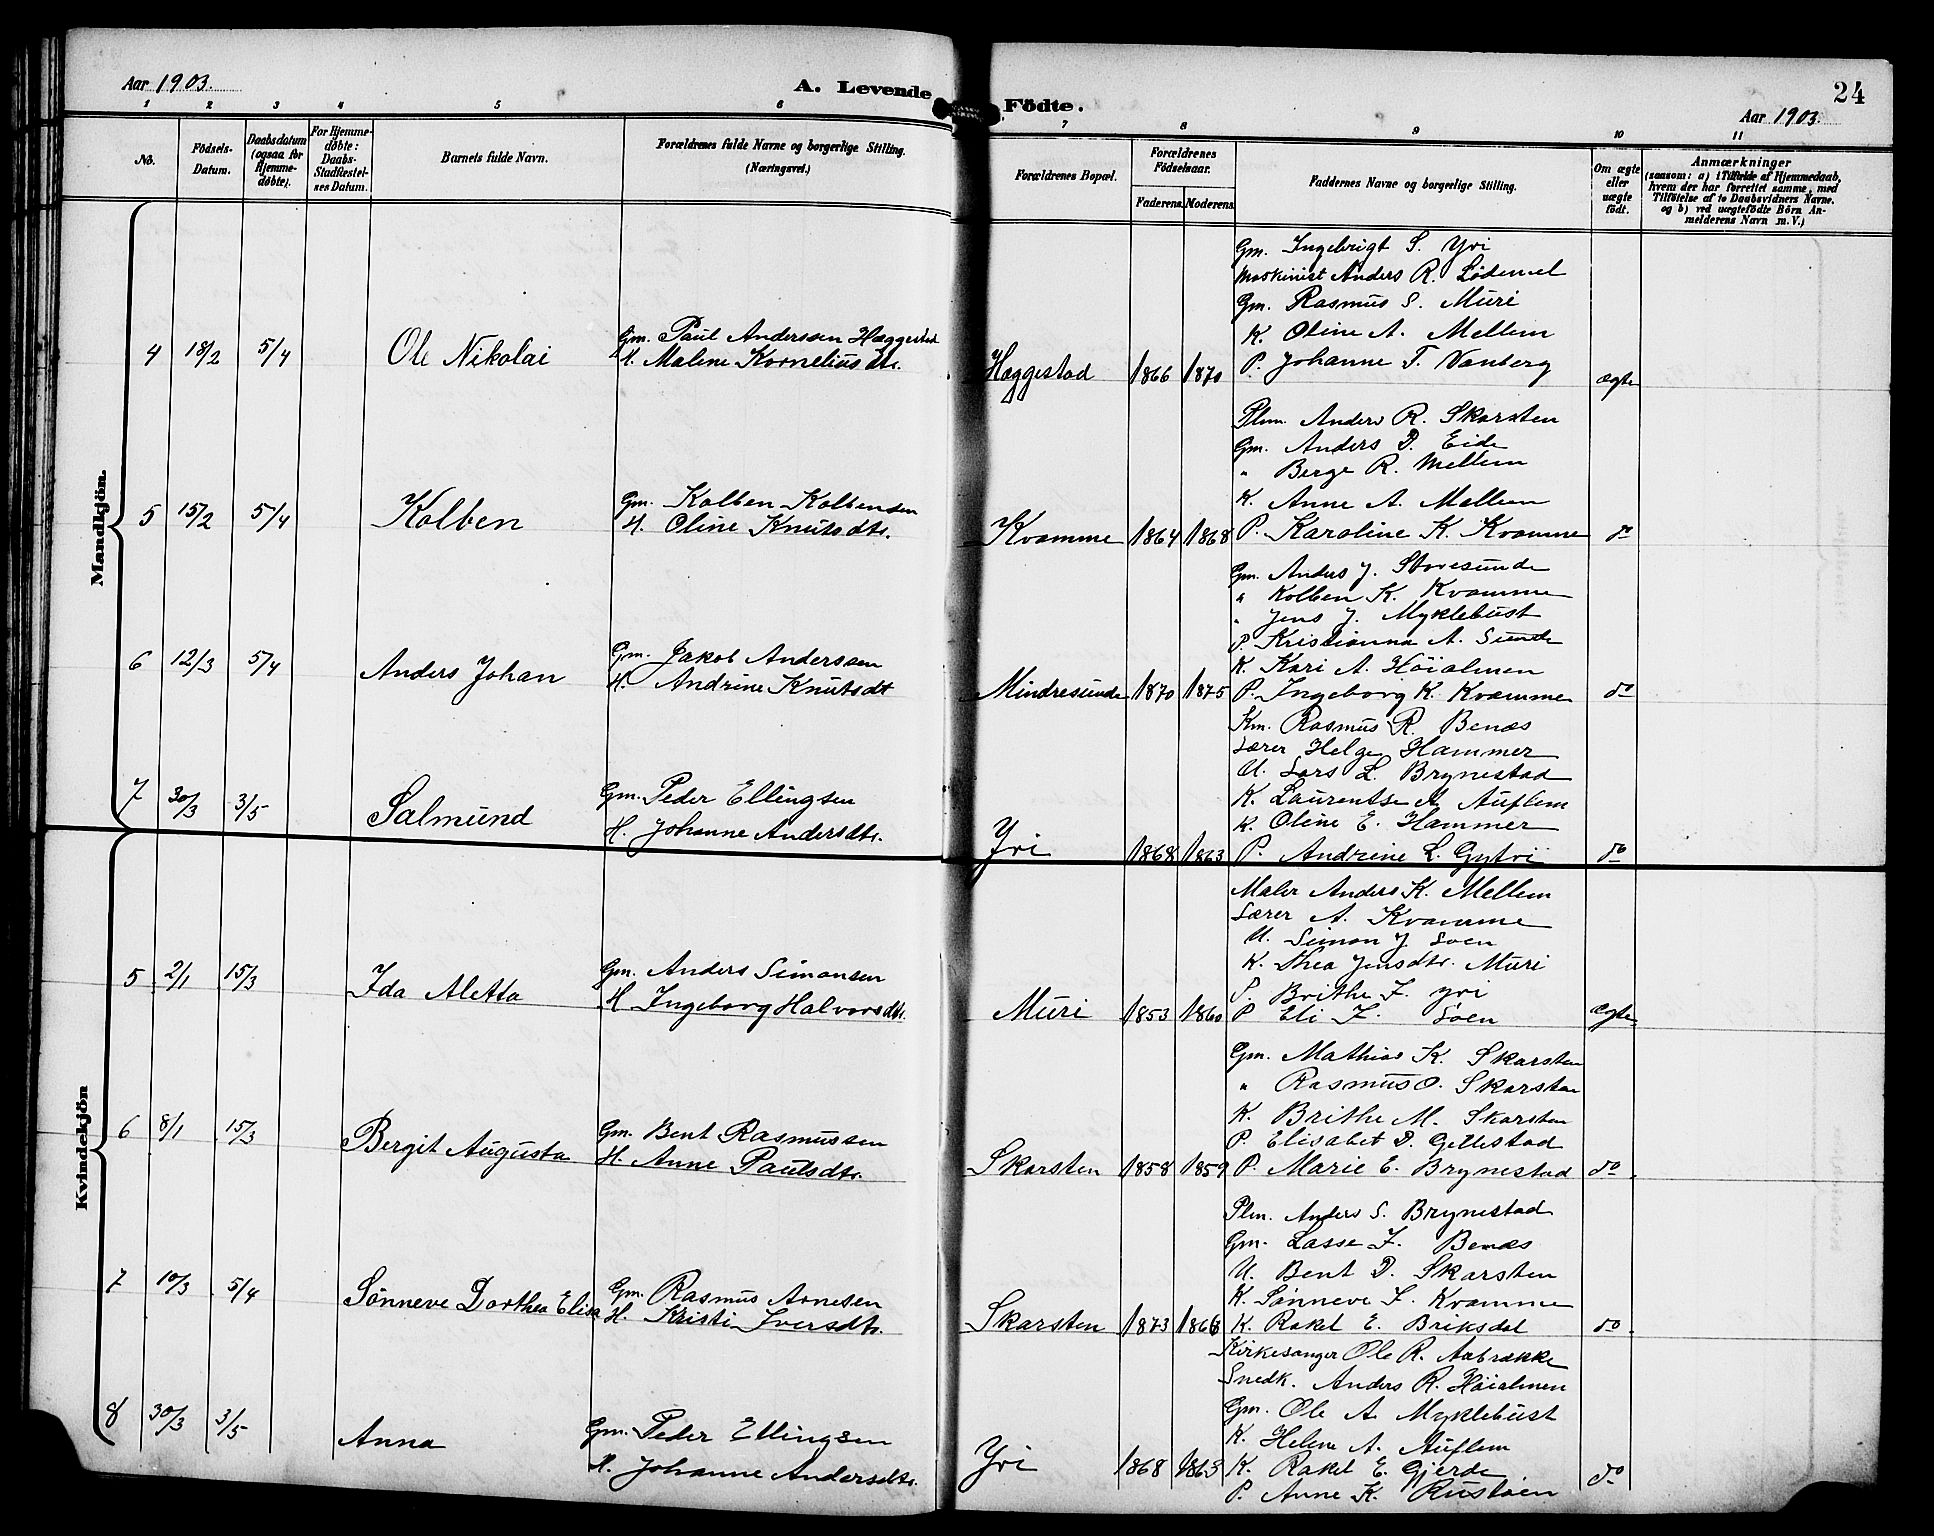 Aar 1903.
A. Levende Födte.
24
Aar 1903.
1 2 3 4 5 6 7 8 9 10 11
No.
Födsels-Datum.
Daabsdatum (ogsaa for Hjemme-döbte).
For Hjemme-döbte: Daabs-Stadfæstel-ses Datum.
Barnets fulde Navn.
Forældrenes fulde Navne og borgerlige Stilling.
(Næringsvei.)
Forældrenes Bopæl.
Forældrenes Födselsaar.
Faderens. Moderens.
Faddernes Navne og borgerlige Stilling.
Om ægte eller uægte födt.
Anmærkninger
(saasom: a) i Tilfælde af Hjemmedaab,
hvem der har forrettet samme, med
Tilföielse af to Daabsvidners Navne.
og b) ved uægtefödte Börn An-
melderens Navn m. V.)
Mandkjön.
4 18/2 5/4 Ole Nikolai
Gm. Paul Anderssen Hæggestad
H. Malene Korneliusdtr.
Hæggestad 1866 1870
Gm. Ingebrigt S. Yri
Maskinist Anders R. Lødemel
Gm. Rasmus S. Muri
K. Oline A. Mellem
P. Johanne T. Vanberg
ægte
5 15/2 5/4 Kolben
Gm. Kolben Kolbensen
H. Oline Knutsdtr.
Kvamme 1864 1868
Plm. Anders R. Skarsten
Gm. Anders D. Eide
" Berge R. Mellem
K. Anne A. Mellem
P. Karoline K. Kvamme
do
6 12/3 5/4 Anders Johan
Gm. Jakob Anderssen
H. Andrine Knutsdt
Mindresunde 1870 1875
Gm. Anders J. Storesunde
" Kolben K. Kvamme
" Jens J. Myklebust
P. Kristianna A. Sunde
K. Kari A. Høialmen
P. Ingeborg K. Kvamme
do
7 30/3 3/5 Salmund
Gm. Peder Ellingsen
H. Johanne Andersdtr.
Yri 1868 1863
Km. Rasmus R. Benæs
Lærer Helge Hammer
U. Lars L. Brynestad
K. Laurentse A. Auflem
K. Oline E. Hammer
P. Andrine L. Gytri
do
Kvindekjön
5 2/1 15/3 Ida Aletta
Gm. Anders Simonsen
H. Ingeborg Halvorsdtr.
Muri 1853 1860
Maler Anders K. Mellem
Lærer A. Kvamme
U. Simon J. Loen
K. Thea Jensdtr. Muri
P. Brithe I. Yri
P. Eli I. Loen
Ægte
6 8/1 15/3 Bergit Augusta
Gm. Bent Rasmussen
H. Anne Paulsdtr.
Skarsten 1858 1859
Gm. Mathias K. Skarsten
" Rasmus O. Skarsten
K. Brithe M. Skarsten
P. Elisabet D. Gellestad
P. Marie E. Brynestad
do.
7 10/3 5/4 Sønneve Dorthea Elisa
Gm. Rasmus Arnesen
H. Kristi Iversdtr.
Skarsten 1873 1866
Plm. Anders S. Brynestad
Gm. Lasse I. Benæs
U. Bent D. Skarsten
K. Sønneve I. Kvamme
K. Rakel E. Briksdal
do.
8 30/3 3/5 Anna
Gm. Peder Ellingsen
H. Johanne Andersdtr.
Yri 1868 1863
Kirkesanger Ole R. Aabrække
Snedk. Anders R. Høialmen
Gm. Ole A. Myklebust
K. Helene A. Auflem
K. Rakel E. Gjerde
P. Anne K. Rustøen
do